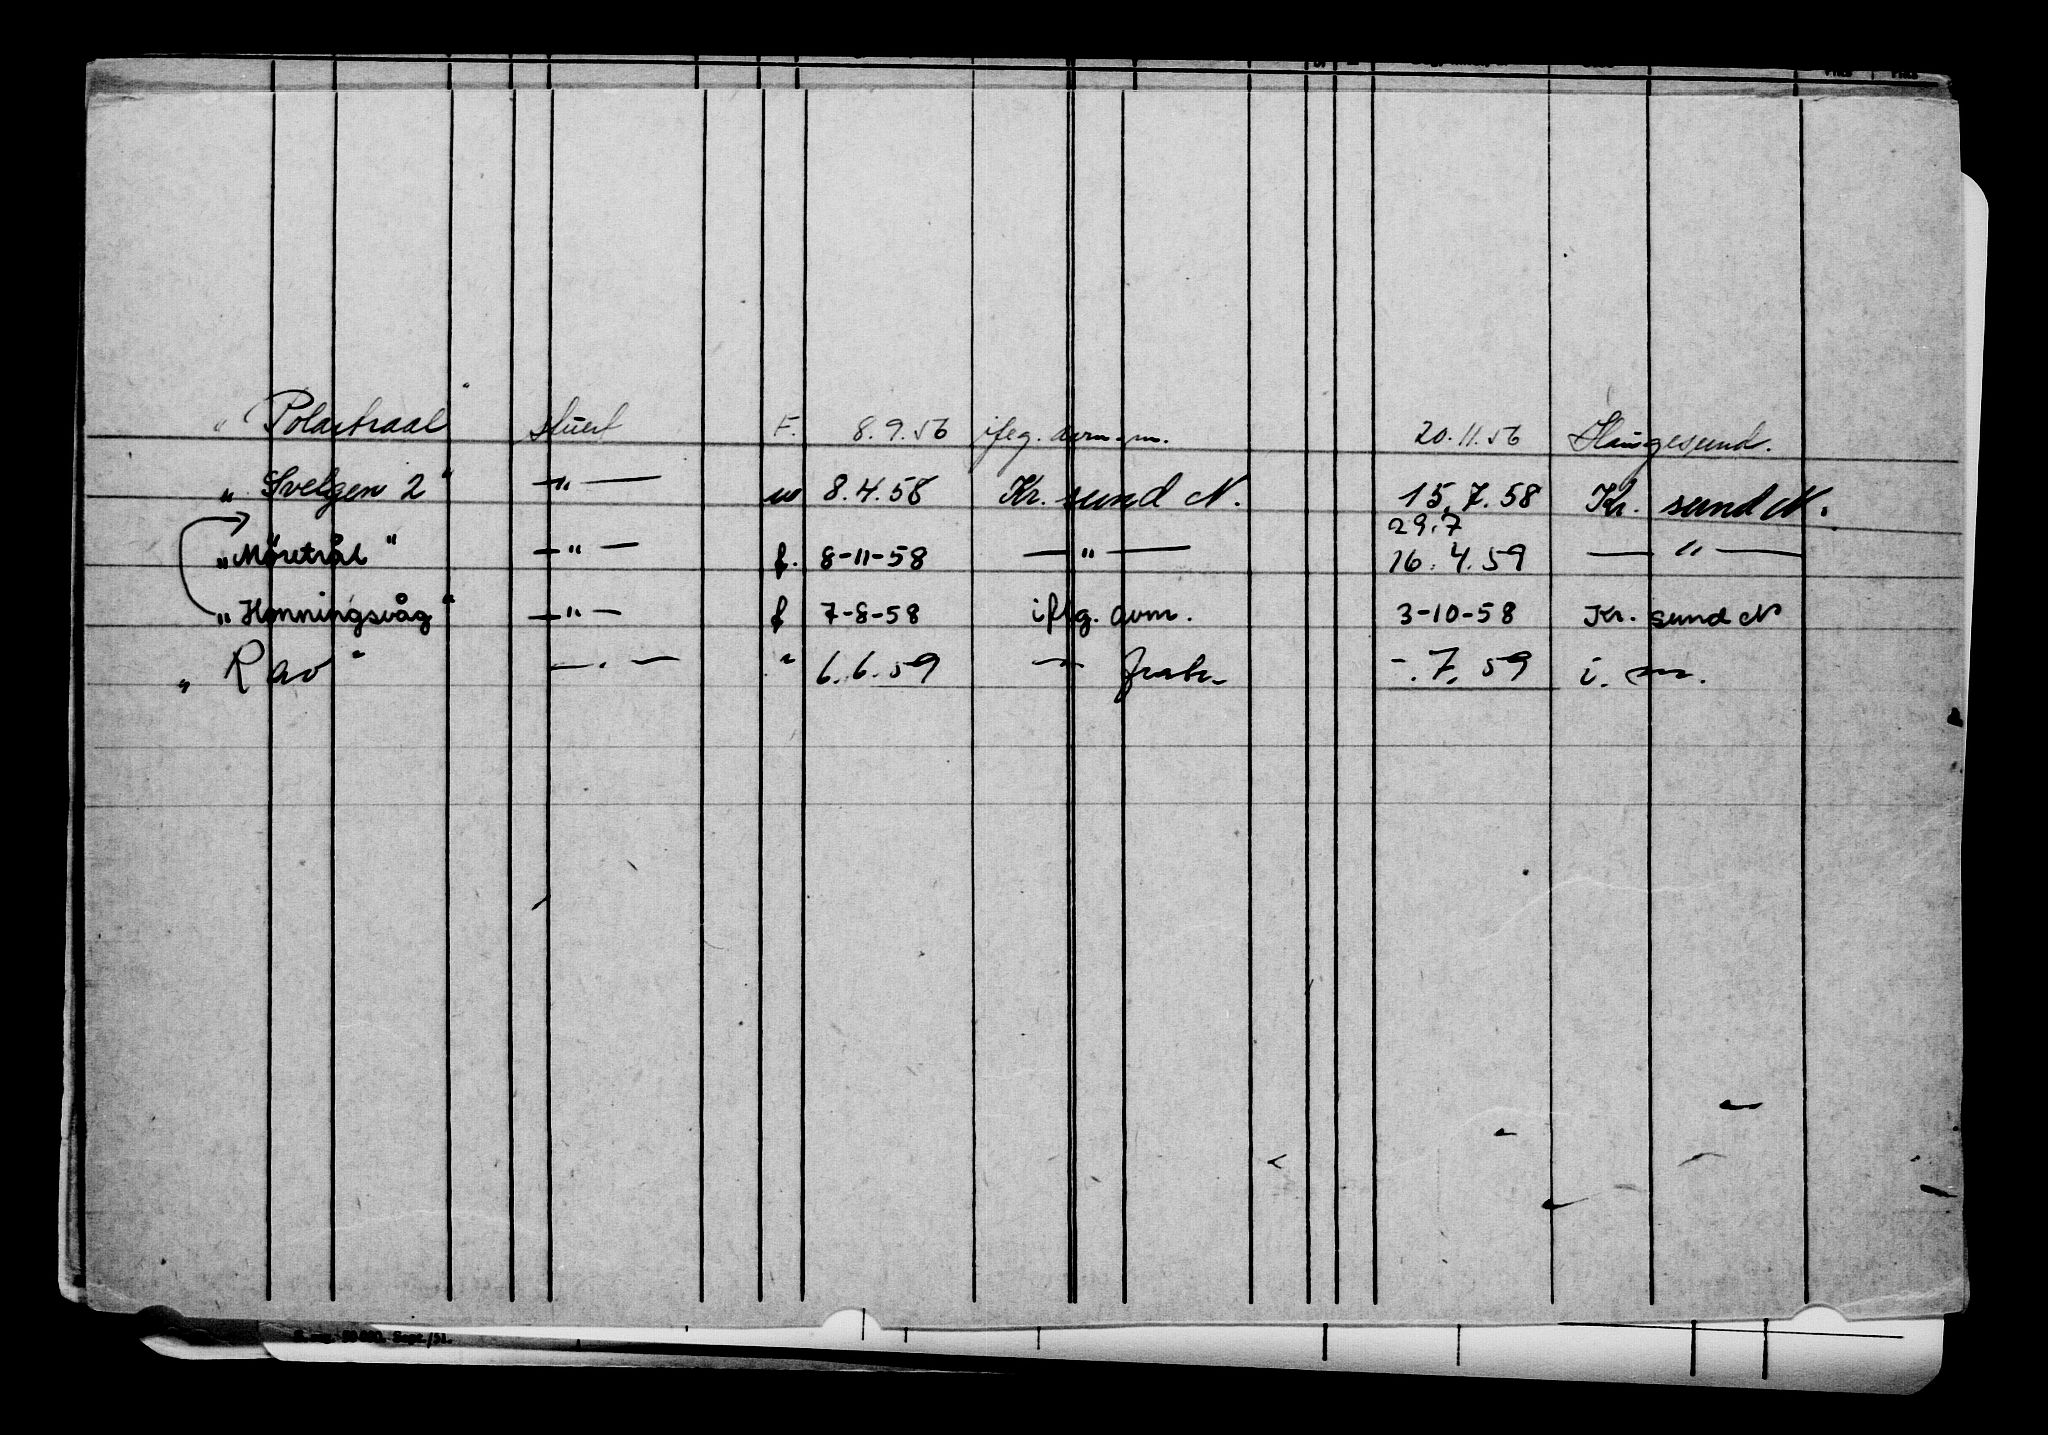 „ Polartraal " stuert F. 8.9.56 ifлg. avm. m. 20.11.56 Haugesund.
„ Svelgen 2 " —"— w 8.4.58 Kr. sund N. 15.7.58 Kr. sund N.
29.7
„ Møretrål " —"— f. 8-11-58 —"— 16.4.59 —"—
„ Honningsvåg " —"— f 7-8-58 iflg. avm. 3-10-58 Kr. sund N
„ Rav " —"— " 6.6.59 —"— -.7.59 i. m.
S. reg. 50 000. Sept./51.